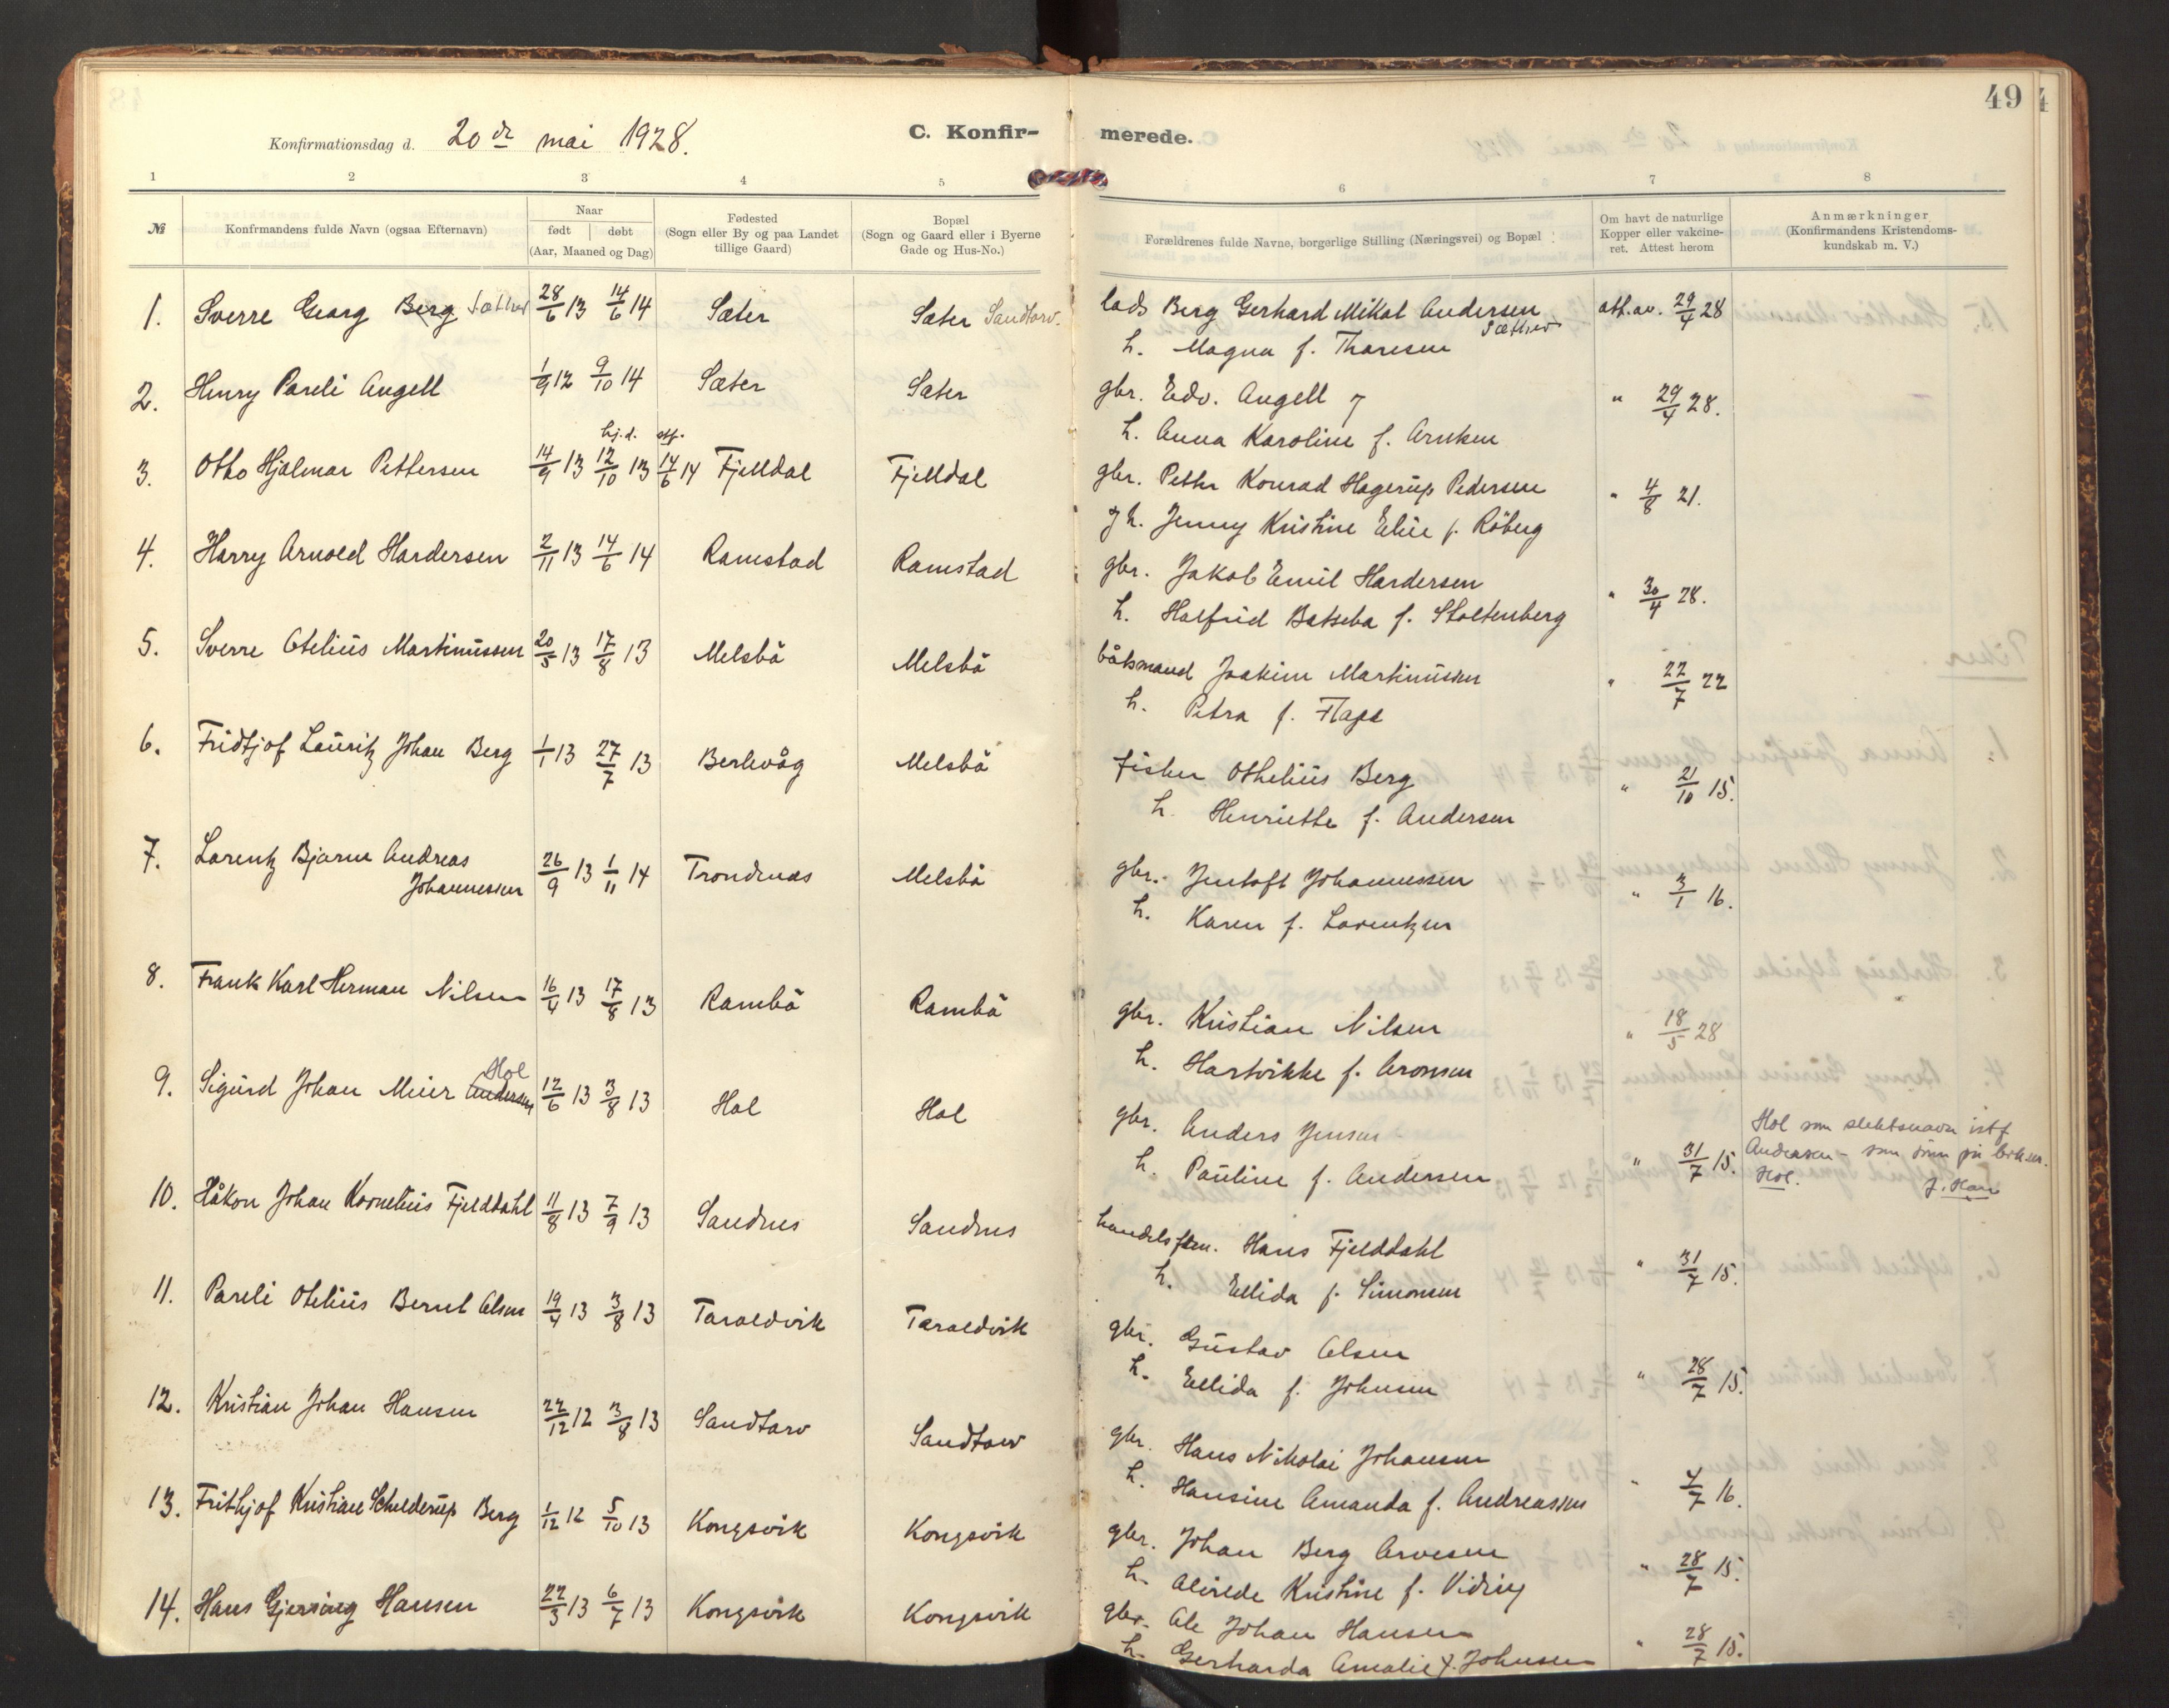 49
Konfirmationsdag d. 20de mai 1928.
C. Konfir-
merede.
1 2 3 4 5 6 7 8
№
Konfirmandens fulde Navn (ogsaa Efternavn)
Naar
født døbt
(Aar, Maaned og Dag)
Fødested
(Sogn eller By og paa Landet
tillige Gaard)
Bopæl
(Sogn og Gaard eller i Byerne
Gade og Hus-No.)
Forældrenes fulde Navne, borgerlige Stilling (Næringsvei) og Bopæl
Om havt de naturlige
Kopper eller vakcine-
ret. Attest herom
Anmærkninger
(Konfirmandens Kristendoms-
kundskab m. V.)
1. Sverre Georg Berg Sæther 28/6 13 14/6 14 Sæter Sæter Sandtorv.
lods Berg Gerhard Mikal Andersen Sæther att. av. 29/4 28
h. Magna f. Thoresen
2. Henry Pareli Angell 1/9 12 9/10 14 Sæter Sæter
gbr. Edv. Angell " 29/4 28.
h. Anna Karoline f. Arntsen
hj.d. stf.
3. Otto Hjalmar Pettersen 14/9 13 12/10 13 14/6 14 Fjelldal Fjelldal
gbr. Petter Konrad Hagerup Pedersen " 4/8 21.
h. Jenny Kristine Elise f. Röberg
4. Harry Arnold Hardersen 2/11 13 14/6 14 Ramstad Ramstad
gbr. Jakob Emil Hardersen " 30/4 28.
h. Halfrid Batseba f. Stoltenberg
5. Sverre Otelius Martinussen 20/5 13 17/8 13 Melsbö Melsbö
båtsmand Joakim Martinussen " 22/7 22
h. Petra f.
6. Fridtjof Lauritz Johan Berg 1/1 13 27/7 13 Berlevåg Melsbö
fisker Othelius Berg " 21/10 15.
h. Henriette f. Andersen
7. Lorentz Bjarne Andreas
Johannessen 26/9 13 1/11 14 Trondenes Melsbö
gbr. Jentoft Johannessen " 3/1 16.
h. Karen f. Lorentzen
8. Frank Karl Herman Nilsen 16/4 13 17/8 13 Rambö Rambö
gbr. Kristian Nilsen " 18/5 28
h. Hartvikke f. Aronsen
Hol
9. Sigurd Johan Meier Andersen 12/6 13 3/8 13 Hol Hol
gbr. Anders Jensen " 31/7 15.
h. Pauline f. Andersen
Hol som slektsnavn istf.
Andersen - som
Hol.
10. Håkon Johan Kornelius Fjelddahl 11/8 13 7/9 13 Sandnes Sandnes
handelsfm. Hans Fjelddahl " 31/7 15.
h. Ellida f. Simonsen
11. Pareli Otelius Bernt Olsen 19/4 13 3/8 13 Taraldvik Taraldvik
gbr. Gustav Olsen " 28/7 15.
h. Ellida f. Johnsen
12. Kristian Johan Hansen 22/12 12 3/8 13 Sandtorv Sandtorv
gbr. Hans Nikolai Johansen " 4/7 16.
h. Hansine Amanda f. Andreassen
13. Frithjof Kristian Schelderup Berg 1/12 12 5/10 13 Kongsvik Kongsvik
gbr. Johan Berg Arvesen " 28/7 15.
h. Alvilde Kristine f. Viding
14. Hans Gjersing Hansen 22/3 13 6/7 13 Kongsvik Kongsvik
gbr. Ole Johan Hansen " 28/7 15.
h. Gerharda Amalie f. Johnsen